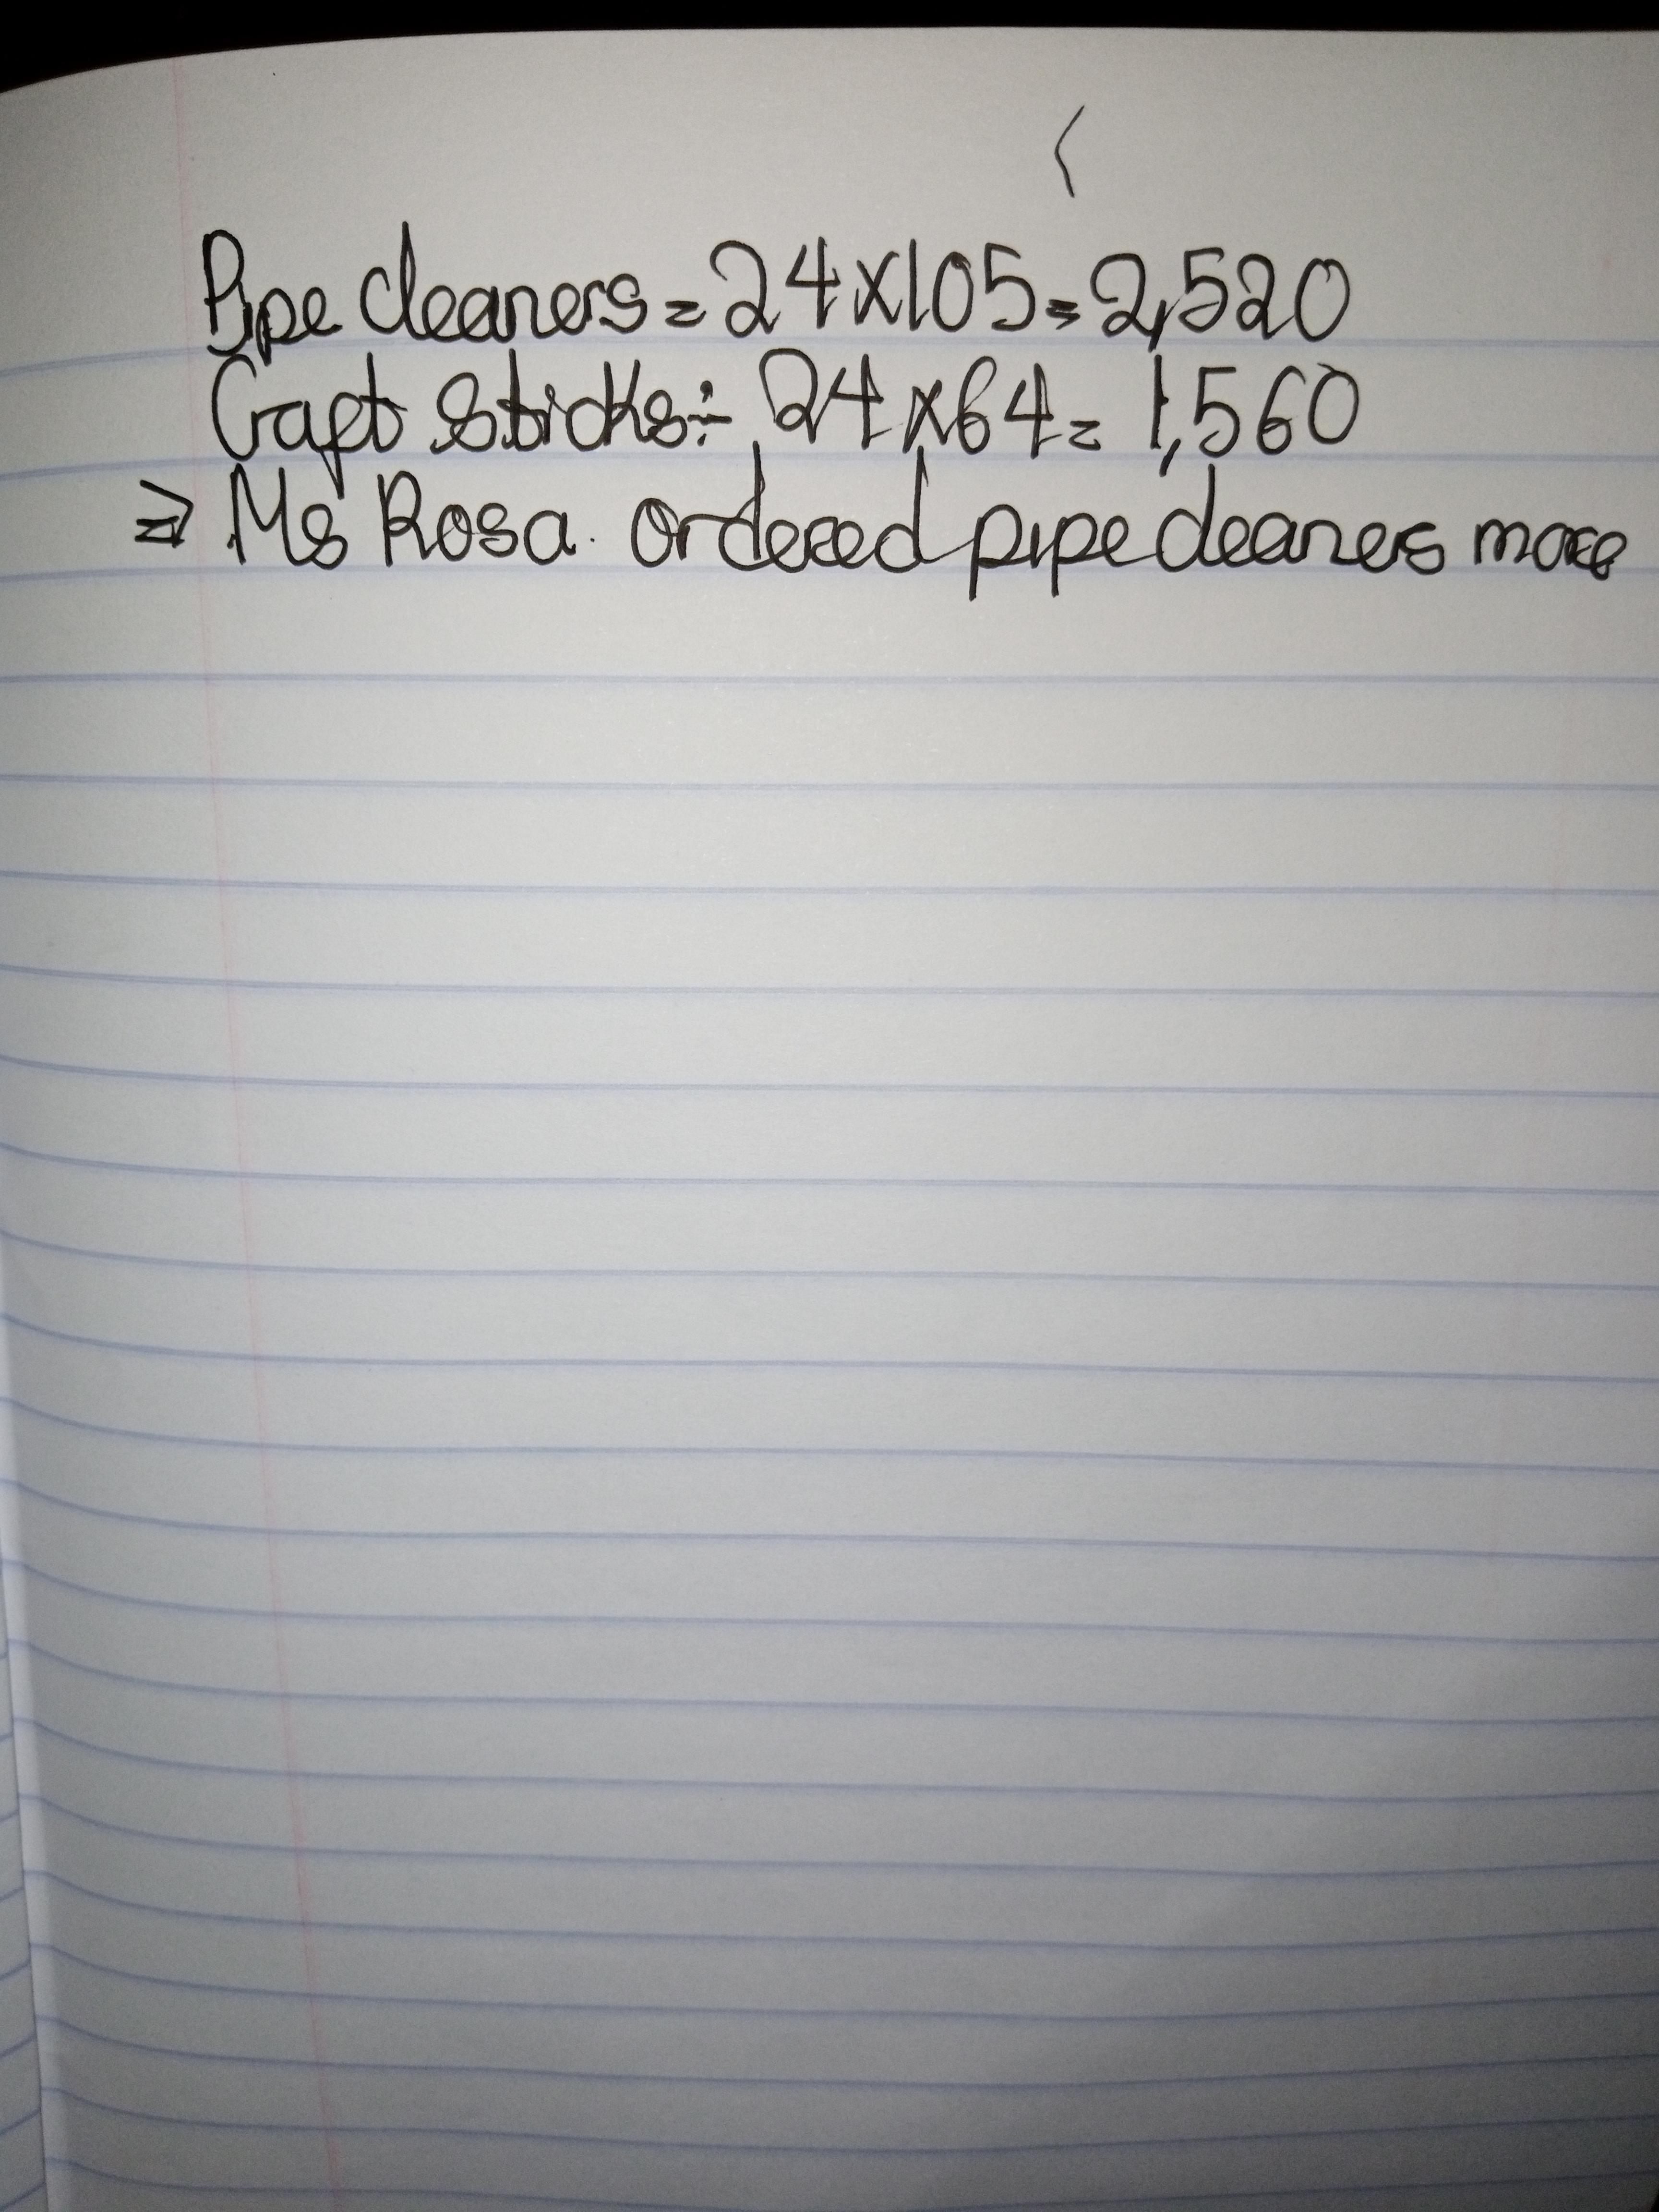 Pipe cleaners = 24x105 = 2,520
Craft sticks:- 24x64 = 1,560
⇒ Ms Rosa. ordered pipe cleaners more